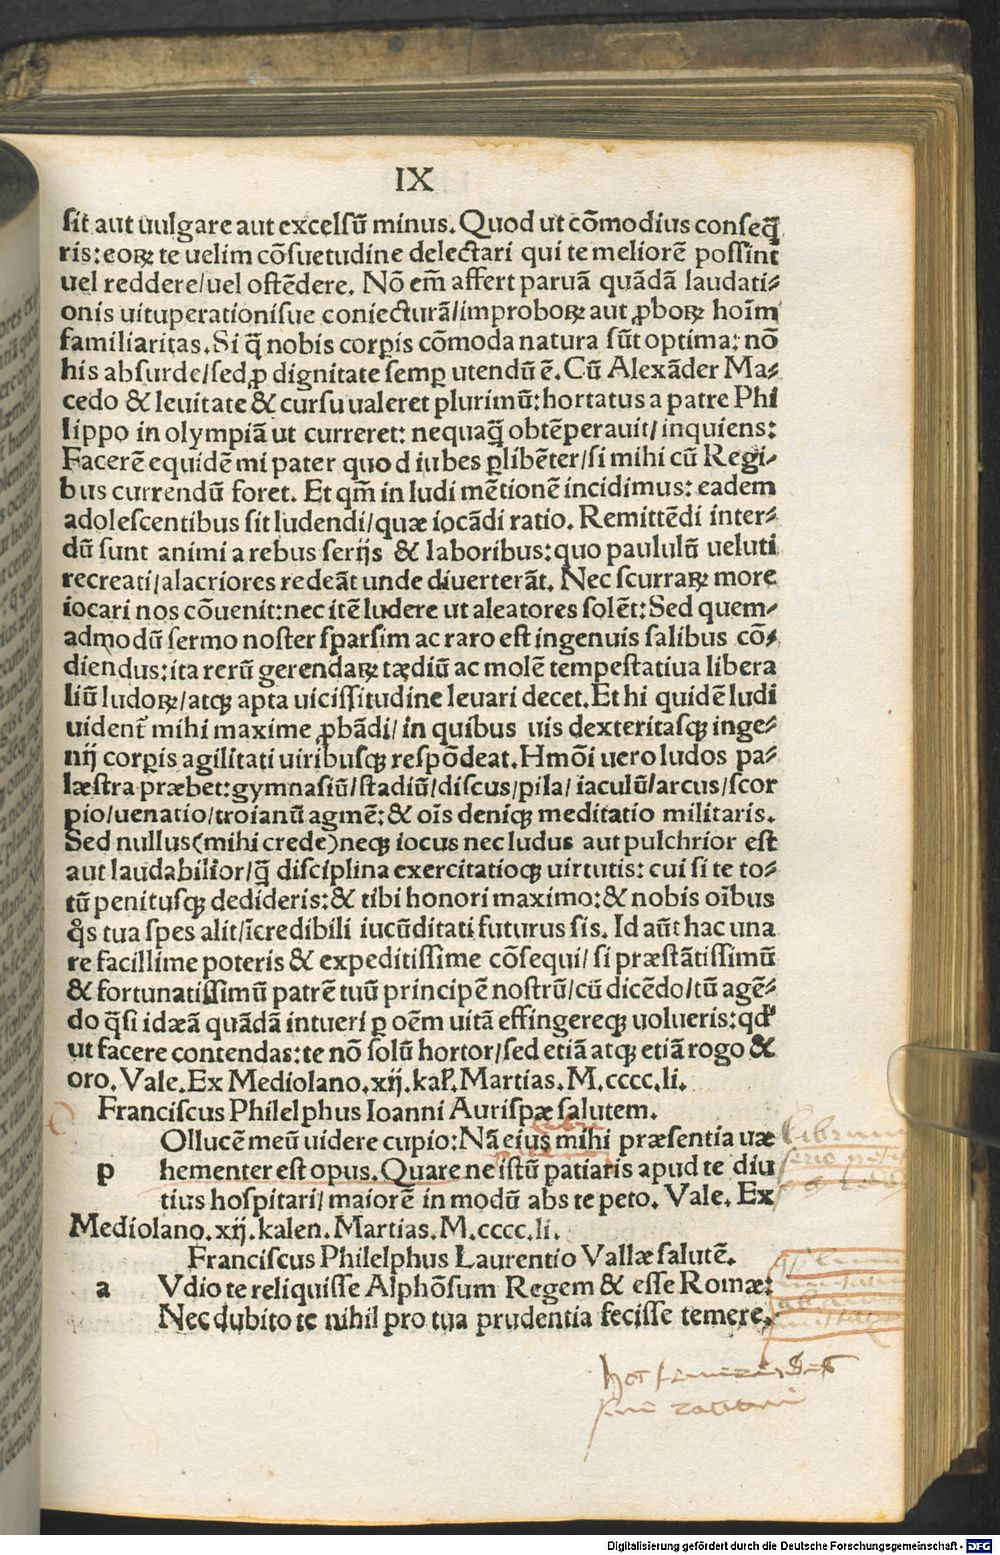 IX
ſit aut uulgare aut excelſū minus. Quod ut cōmodius conſeq̄
ris:eoꝝ te uelim cōſuetudine delectari qui te meliorē poſſint
uel reddere/uel oſtēdere. Nō em̄ affert paruā quādā laudati⸗
onis uituperationiſue coniecturā/improboꝝ aut ꝓboꝝ hoīm
familiaritas. Si q̄ nobis corꝑis cōmoda natura ſūt optima: nō
his abſurde/ſed ꝓ dignitate ſemꝑ utendū ē. Cū Alexāder Ma⸗
cedo & leuitate & curſu ualeret plurimū:hortatus a patre Phi
lippo in olympiā ut curreret: nequaq̄ obtēperauit/inquiens:
Facerē equidē mi pater quod iubes ꝑlibēter/ſi mihi cū Regi⸗
bus currendū foret. Et qm̄ in ludi mētionē incidimus: eadem
adoleſcentibus ſit ludendi/quæ iocādi ratio. Remittēdi inter⸗
dū ſunt animi a rebus ſerijs & laboribus:quo paululū ueluti
recreati/alacriores redeāt unde diuerterāt. Nec ſcurraꝝ more
iocari nos cōuenit:nec itē ludere ut aleatores ſolēt:Sed quem⸗
admodū ſermo noſter ſparſim ac raro eſt ingenuis ſalibus cō⸗
diendus:ita rerū gerendaꝝ tędiū ac molē tempeſtatiua libera
liū ludoꝝ/atqꝫ apta uiciſſitudine leuari decet. Et hi quidē ludi
uident̄ mihi maxime ꝓbādi/ in quibus uis dexteritaſqꝫ inge⸗
nij corꝑis agilitati uiribuſqꝫ reſpōdeat. Hmōi uero ludos pa⸗
læſtra præbet:gymnaſiū/ſtadiū/diſcus/pila/ iaculū/arcus/ſcor
pio/uenatio/troianū agmē:& oīs deniqꝫ meditatio militaris.
Sed nullus(mihi crede)neqꝫ iocus nec ludus aut pulchrior eſt
aut laudabilior/q̄ diſciplina exercitatioqꝫ uirtutis: cui ſi te to⸗
tū penituſqꝫ dedideris:& tibi honori maximo:& nobis oībus
q̊s tua ſpes alit/īcredibili iucūditati futurus ſis. Id aūt hac una
re facillime poteris & expeditiſſime cōſequi/ ſi præſtātiſſimū
& fortunatiſſimū patrē tuū principē noſtrū/cū dicēdo/tū agē⸗
do q̄ſi idæā quādā intueri ꝑ oēm uitā effingereqꝫ uolueris:qđ
ut facere contendas:te nō ſolū hortor/ſed etiā atqꝫ etiā rogo &
oro. Vale. Ex Mediolano.xij.kaƚ.Martias. M.cccc.li.
Franciſcus Philelphus Ioanni Auriſpæ ſalutem.
Ollucē meū uidere cupio:Nā eius mihi præſentia uæ
p hementer eſt opus. Quare ne iſtū patiaris apud te diu
tius hoſpitari/ maiorē in modū abs te peto. Vale. Ex
Mediolano.xij.kalen.Martias.M.cccc.li.
Franciſcus Philelphus Laurentio Vallæ ſalutē.
a Vdio te reliquiſſe Alphōſum Regem & eſſe Romæ:
Nec dubito te nihil pro tua prudentia feciſſe temere.
Digitalisierung gefördert durch die Deutsche Forschungsgemeinschaft - DFG